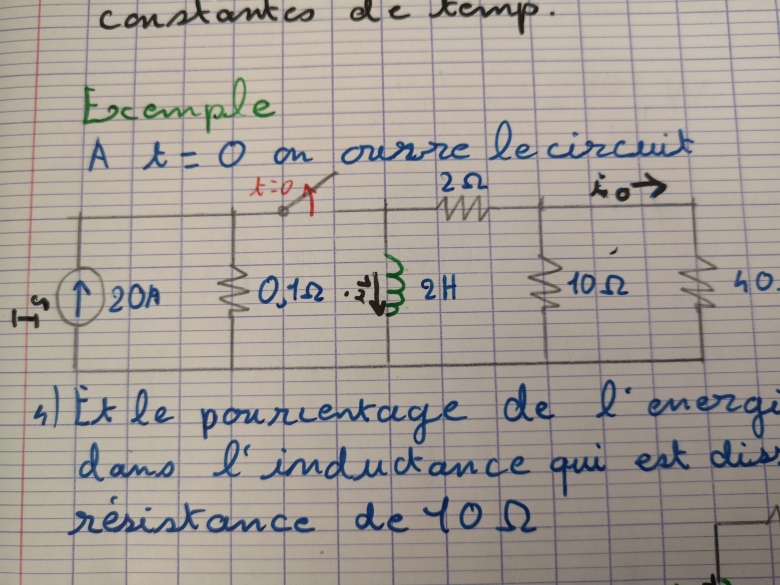 constantes de temp.
Exemple
A t = 0 on ouvre le circuit
t=0
2Ω
i₀ →
Is
20A
0,1Ω
2H
10Ω
40
4) Et le pourcentage de l'energi
dans l'inductance qui est dis
résistance de 10 Ω